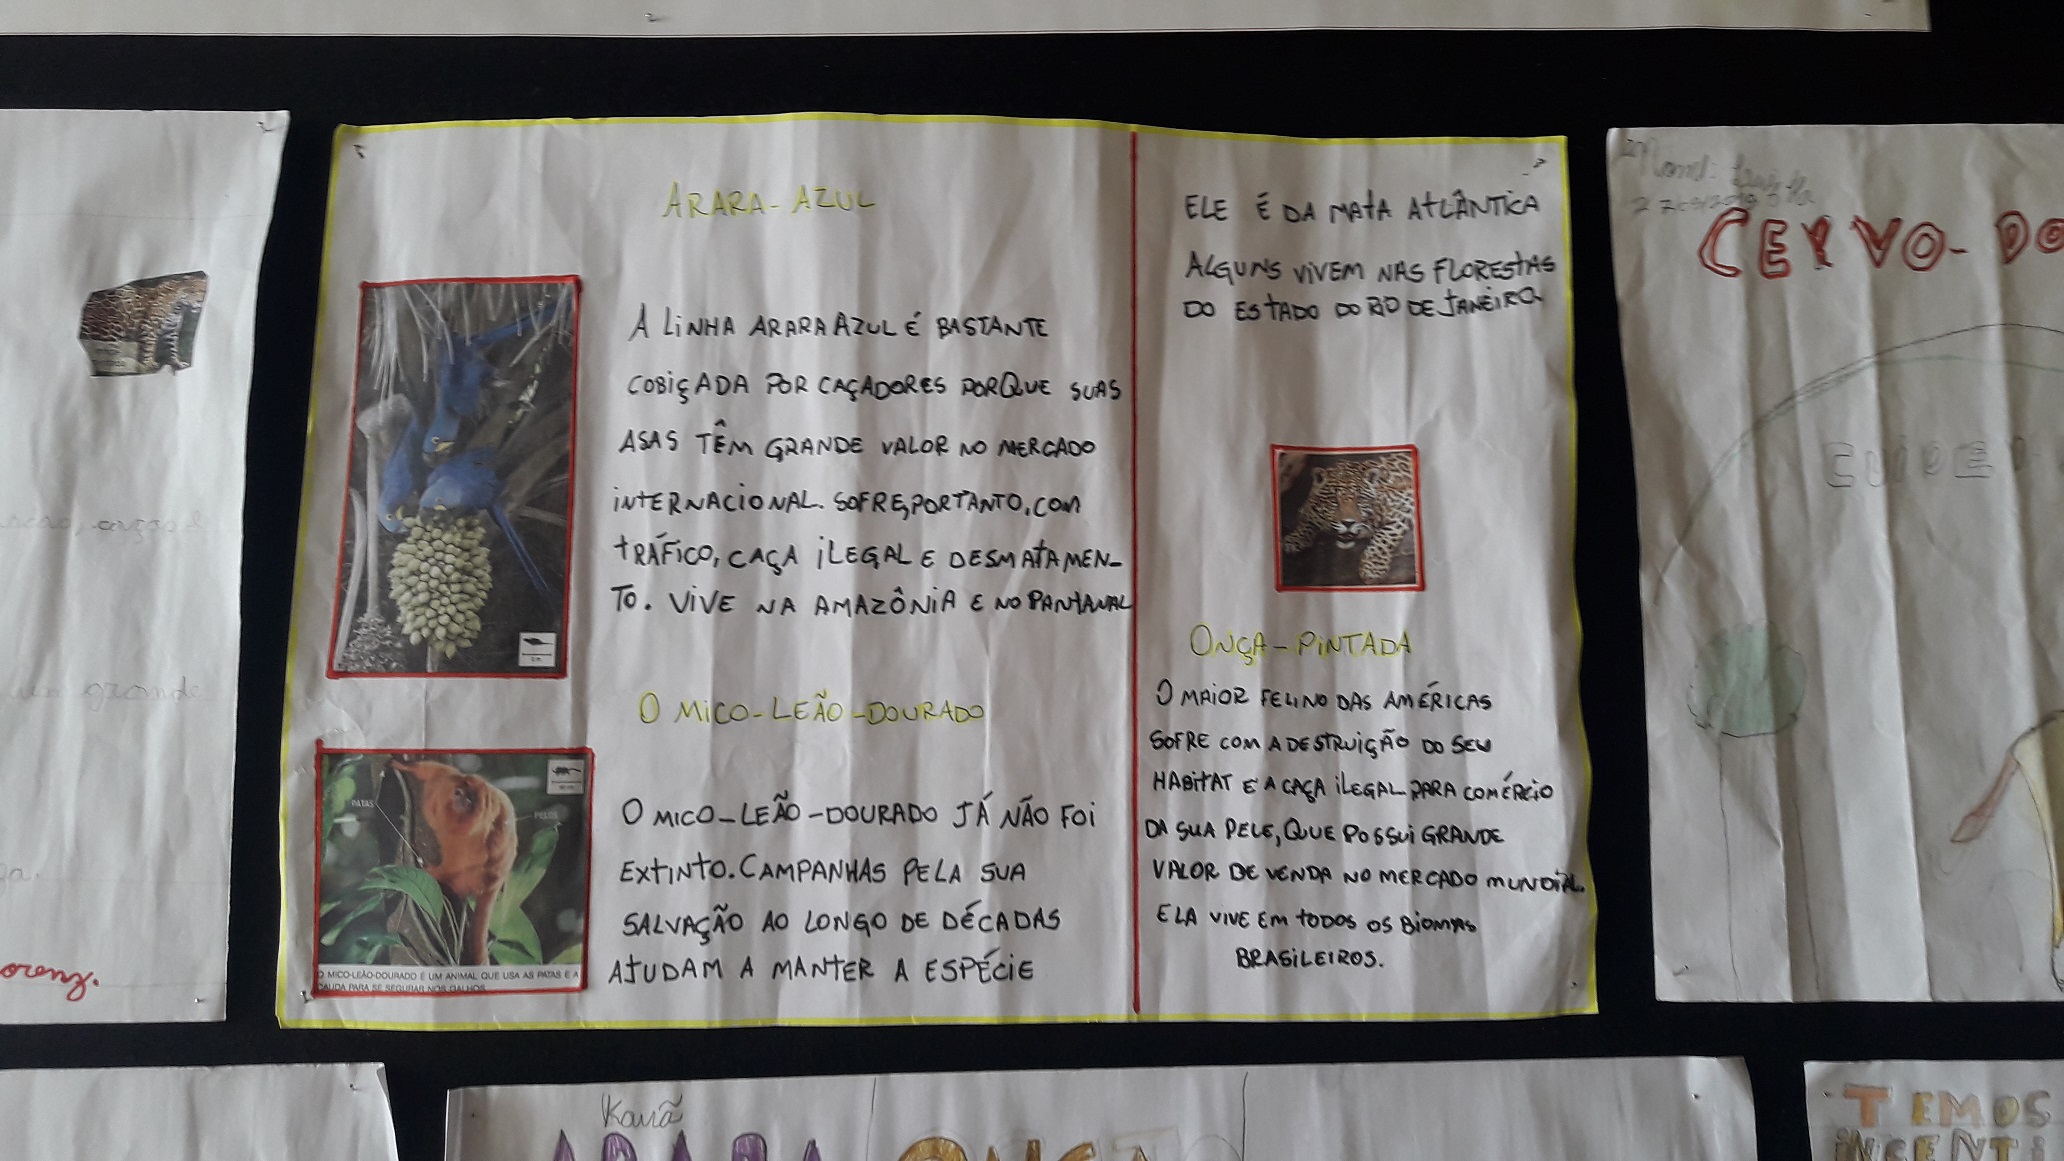 ARARA-AZUL
A LINHA ARARA AZUL É BASTANTE
COBIÇADA POR CAÇADORES PORQUE SUAS
ASAS TÊM GRANDE VALOR NO MERCADO
INTERNACIONAL. SOFRE, PORTANTO, COM
TRÁFICO, CAÇA ILEGAL E DESMATAMEN-
TO. VIVE NA AMAZÔNIA E NO PANTANAL
O MICO-LEÃO-DOURADO
PATAS
PELOS
O MICO-LEÃO-DOURADO É UM ANIMAL QUE USA AS PATAS E A
CAUDA PARA SE SEGURAR NOS GALHOS
O MICO-LEÃO-DOURADO JÁ NÃO FOI
EXTINTO. CAMPANHAS PELA SUA
SALVAÇÃO AO LONGO DE DÉCADAS
AJUDAM A MANTER A ESPÉCIE
ELE É DA MATA ATLÂNTICA
ALGUNS VIVEM NAS FLORESTAS
DO ESTADO DO RIO DE JANEIRO.
ONÇA-PINTADA
O MAIOR FELINO DAS AMÉRICAS
SOFRE COM A DESTRUIÇÃO DO SEU
HABITAT E A CAÇA ILEGAL PARA COMÉRCIO
DA SUA PELE, QUE POSSUI GRANDE
VALOR DE VENDA NO MERCADO MUNDIAL.
ELA VIVE EM TODOS OS BIOMAS
BRASILEIROS.
um grande
CERVO-DO
Kauã
ARARA ONÇA
TEMOS